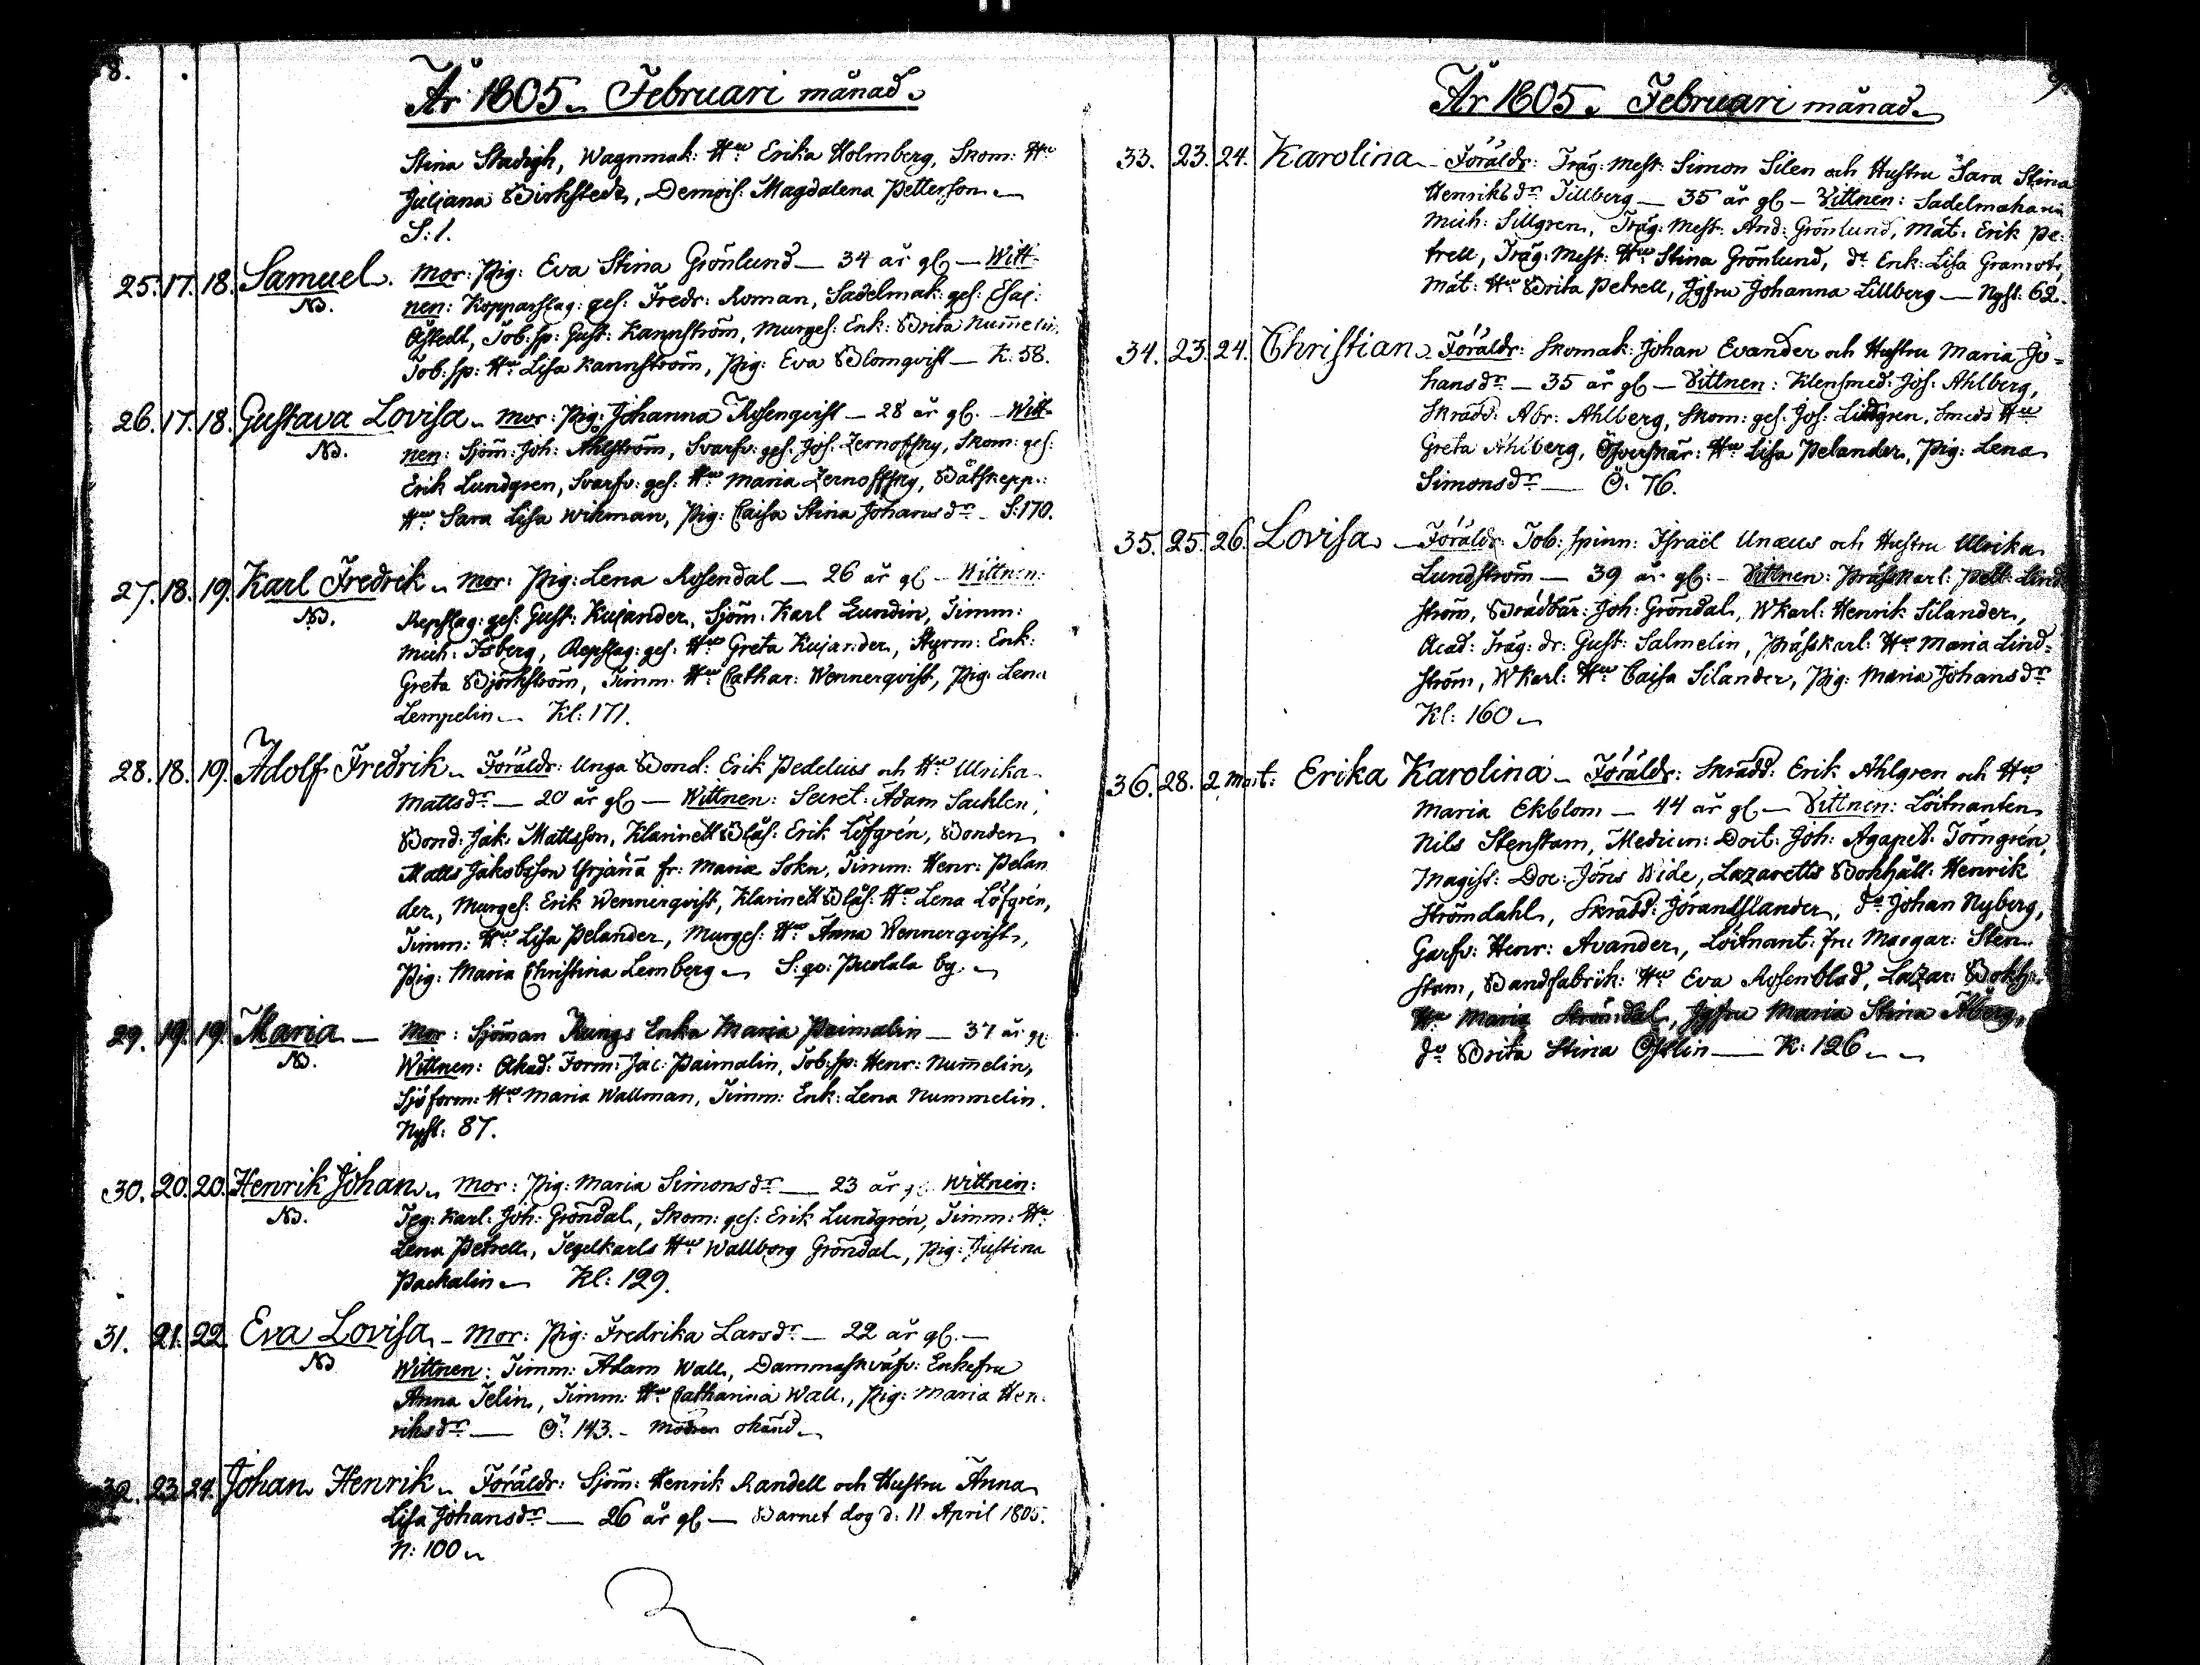 8.
År 1805. Februari månad.
Stina Stadigh, Wagnmak: Hu Erika Holmberg, Skom: Hu
Juliana Birkstedt, Demois: Magdalena Petterson
S: 1.
25. 17. 18. Samuel. Mor: Pig: Eva Stina Grönlund — 34 år gl — Witt-
Nb. nen: Kopparslag: ges: Fredr: Roman, Sadelmak: ges: Esai:
Åstedt, Tob: sp: Gust: Kannström, Murges: Enk: Brita Num̄elin,
Tob: sp: Hu Lisa Kannström, Pig: Eva Blomqvist — K: 58.
26. 17. 18. Gustava Lovisa. Mor: Pig: Johanna Rosenqvist — 28 år gl. — Witt-
Nb. nen: Sjöm: Joh: Ahlström, Svarfv: ges: Jos: Zernoffsky, Skom: ges:
Erik Lundgren, Svarfv: ges: Hu Maria Zernoffsky, Båtskepp:
Hu Sara Lisa Wikman, Pig: Caisa Stina Johansdr — S: 170.
27. 18. 19. Karl Fredrik. Mor: Pig: Lena Rosendal — 26 år gl — Wittnen:
Nb. Repslag: ges: Gust: Kujander, Sjöm: Karl Lundin, Timm:
Mich: Isberg, Repslag: ges: Hu Greta Kujander, Styrm: Enk:
Greta Björkström, Timm: Hu Cathar: Wennerqvist, Pig: Lena
Lempelin — Kl: 171.
28. 18. 19. Adolf Fredrik. Föräldr: Unga Bond: Erik Pedelius och Hu Ulrika
Mattsdr — 20 år gl — Wittnen: Secret: Adam Sacklen,
Bond: Jak: Mattsson, Klarinett Blås: Erik Löfgrén, Bonden
Matts Jakobsson Yrjänä fr: Mariæ Sokn, Timm: Henr: Pelan
der, Murges: Erik Wennerqvist, Klarinett Blås: Hu Lena Löfgrén,
Timm: Hu Lisa Pelander, Murges: Hu Anna Wennerqvist,
Pig: Maria Christina Lemberg — S: 90: by.
29. 19. 19. Maria — Mor: Sjöman Kungs Enka Maria Paimalin — 37 år gl:
Nb. Wittnen: Akad: Form: Jac: Paimalin, Tob: sp: Henr: Num̄elin,
Sjöform: Hu Maria Wallman, Timm: Enk: Lena Nummelin.
Nyst: 87.
30. 20. 20. Henrik Johan. Mor: Pig: Maria Simonsdr — 23 år gl. Wittnen:
Nb. Teg: Karl: Joh: Gröndal, Skom: ges: Erik Lundgrén, Timm: Hu
Lena Petrell, Tegelkarls Hu Wallborg Gröndal, Pig: Justina
Packalin — Kl: 129.
31. 21. 22. Eva Lovisa. — Mor: Pig: Fredrika Larsdr — 22 år gl. —
Nb Wittnen: Timm: Adam Wall, Dammaskväfv: Enkefru
Anna Telin, Timm: Hu Catharina Wall, Pig: Maria Hen-
riksdr — Ö: 143. — Modren okänd.
32. 23. 24. Johan Henrik. Föräldr: Sjöm: Henrik Randell och Hustru Anna
Lisa Johansdr — 26 år gl — Barnet dog d: 11 April 1805.
N: 100
9.
År 1805. Februari månad.
33. 23. 24. Karolina. Föräldr: Träg: Mest: Simon Silen och Hustru Sara Stina
Henriksdr Tillberg — 35 år gl — Vittnen: Sadelmakaren
Mich: Sillgren, Träg: Mest: And: Grönlund, Mät: Erik Pe-
trell, Träg: Mest: Hu Stina Grönlund, do Enk: Lisa
Mät: Hu Brita Petrell, Jgfru Johanna Lillberg — Nyst: 62.
34. 23. 24. Christian. Föräldr: Skomak: Johan Evander och Hustru Maria Jo-
hansdr — 35 år gl — Vittnen: Klensmed: Jos: Ahlberg,
Skrädd: Abr: Ahlberg, Skom: ges: Jos: Lindgren, Smeds Hu
Greta Ahlberg, Öfverskär: Hu Lisa Pelander, Pig: Lena
Simonsdr — Ö: 76.
35. 25. 26. Lovisa — Föräldr: Tob: spinn: Israël Unæus och Hustru Ulrika
Lundström — 39 år gl: — Vittnen: Pråsskarl: Pett: Lind
ström, Brädbär: Joh: Gröndal, Wkarl: Henrik Silander,
Acad: Träg: dr: Gust: Salmelin, Pråsskarl: Hu Maria Lind-
ström, Wkarl: Hu Caisa Silander, Pig: Maria Johansdr
Kl: 160
36. 28. 2 Mart: Erika Karolina — Föräldr: Skrädd: Erik Ahlgren och Hu
Maria Ekblom — 44 år gl — Vittnen: Löitnanten
Nils Stenstam, Medicin: Doct: Joh: Agapet: Törngrén,
Magist: Doc: Jöns Wide, Lazaretts Bokhåll: Henrik
Strömdahl, Skrädd: Jöran Slander, do Johan Nyberg,
Garfv: Henr: Avander, Löitnant: fru Margar: Sten
stam, Bandfabrik: Hu Eva Rosenblad, Lazar: Bokh:
Hu Maria Strömdal, Jgfru Maria Stina Åberg,
do Brita Stina Östlin — K: 126